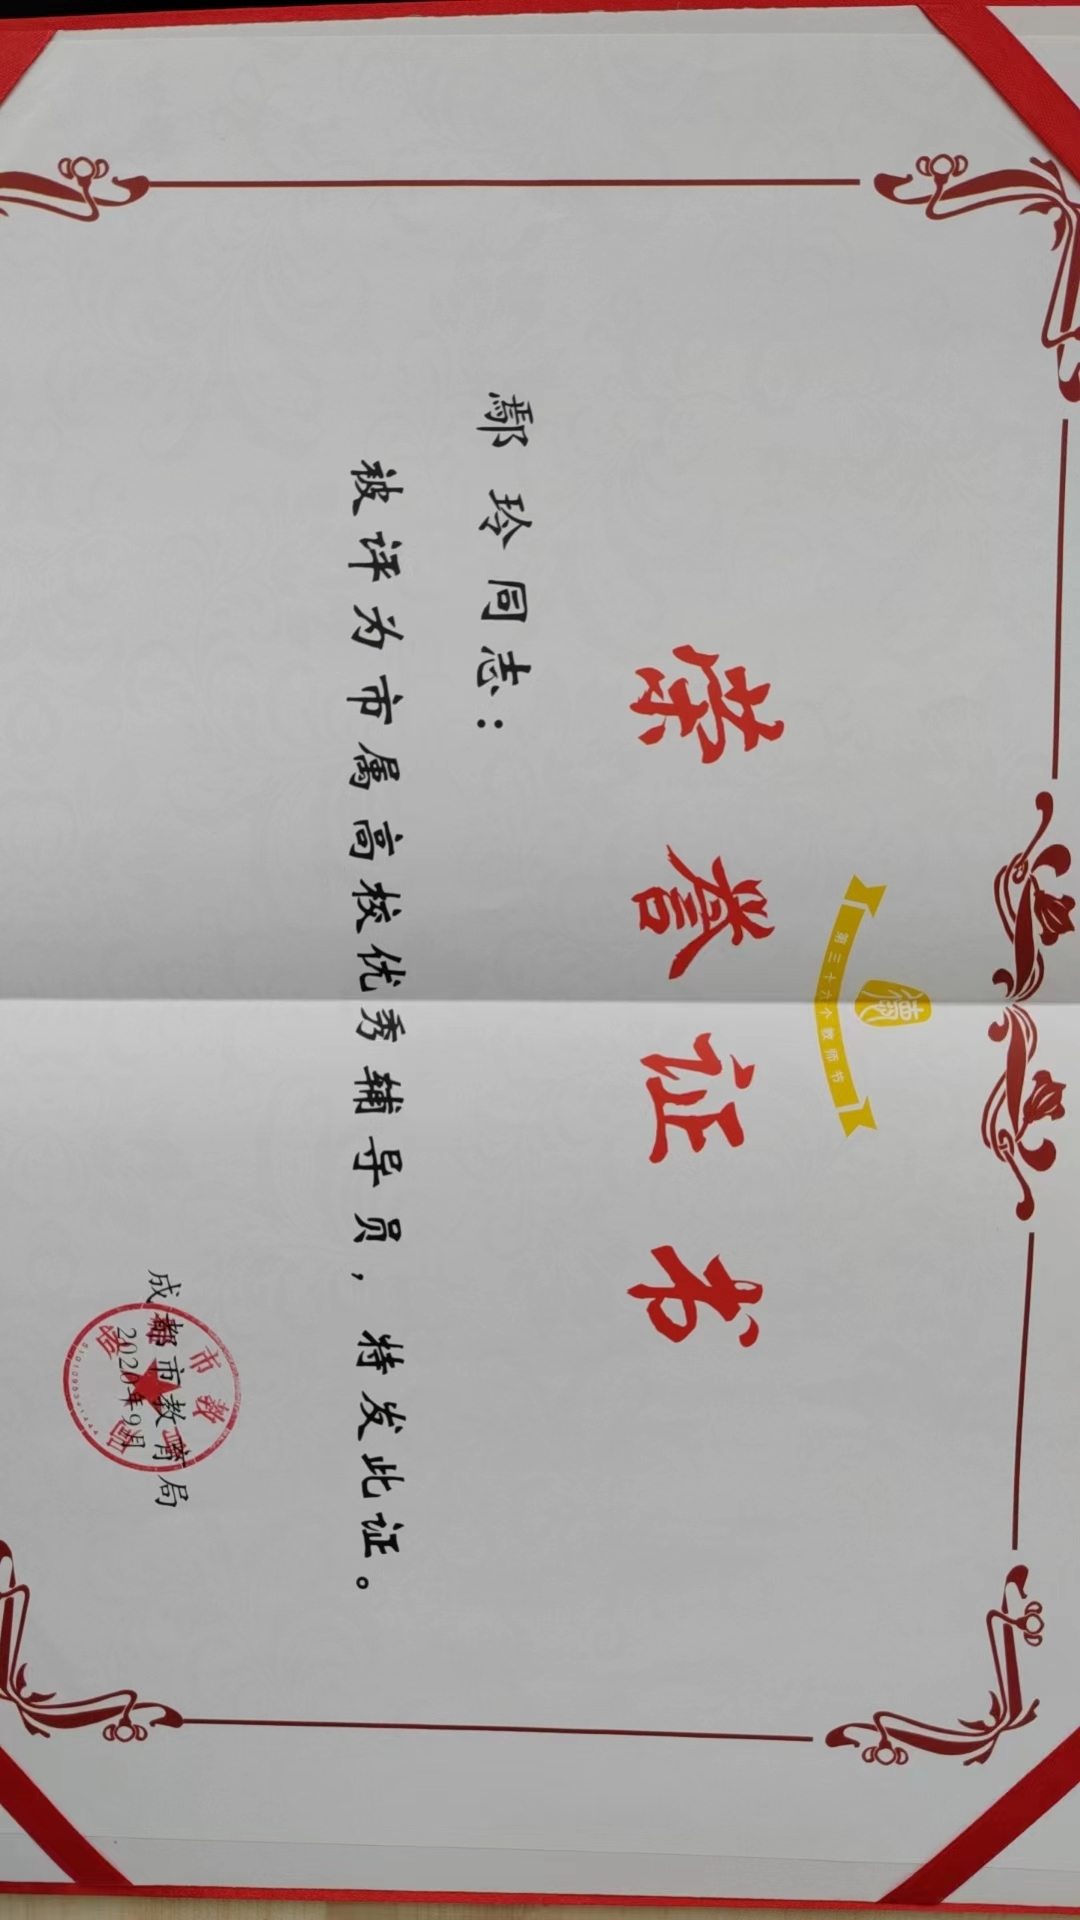 德
第三十六个教师节
荣誉证书
鄢玲同志：
被评为市属高校优秀辅导员，特发此证。
成都市教育局
2020年9月